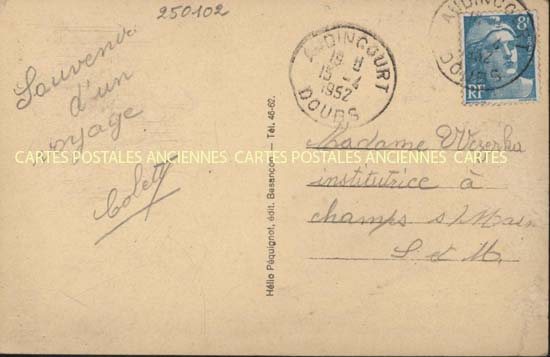 250102
Souvenir
d'un
voyage
Colette
Hélio Péquignot, édit. Besançon — Tél. 46-62.
AUDINCOURT
18 H
15 -4
1952
DOUBS
8F
RF
AUDINCOURT
DOUBS
Madame
institutrice à
champs s/Marn
S et M.
CARTES POSTALES ANCIENNES CARTES POSTALES ANCIENNES CARTES